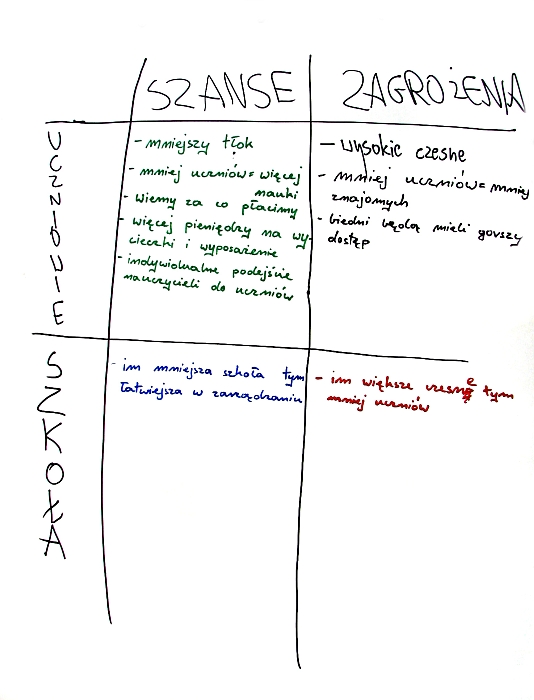 SZANSE
ZAGROŻENIA
UCZNIOWIE
- mniejszy tłok
- mniej uczniów = więcej
nauki
- wiemy za co płacimy
- więcej pieniędzy na wy-
cieczki i wyposażenie
- indywidualne podejście
nauczycieli do uczniów
- wysokie czesne
- mniej uczniów = mniej
znajomych
- biedni będą mieli gorszy
dostęp
SZKOŁA
- im mniejsza szkoła tym
łatwiejsza w zarządzaniu
- im większe czesne tym
mniej uczniów